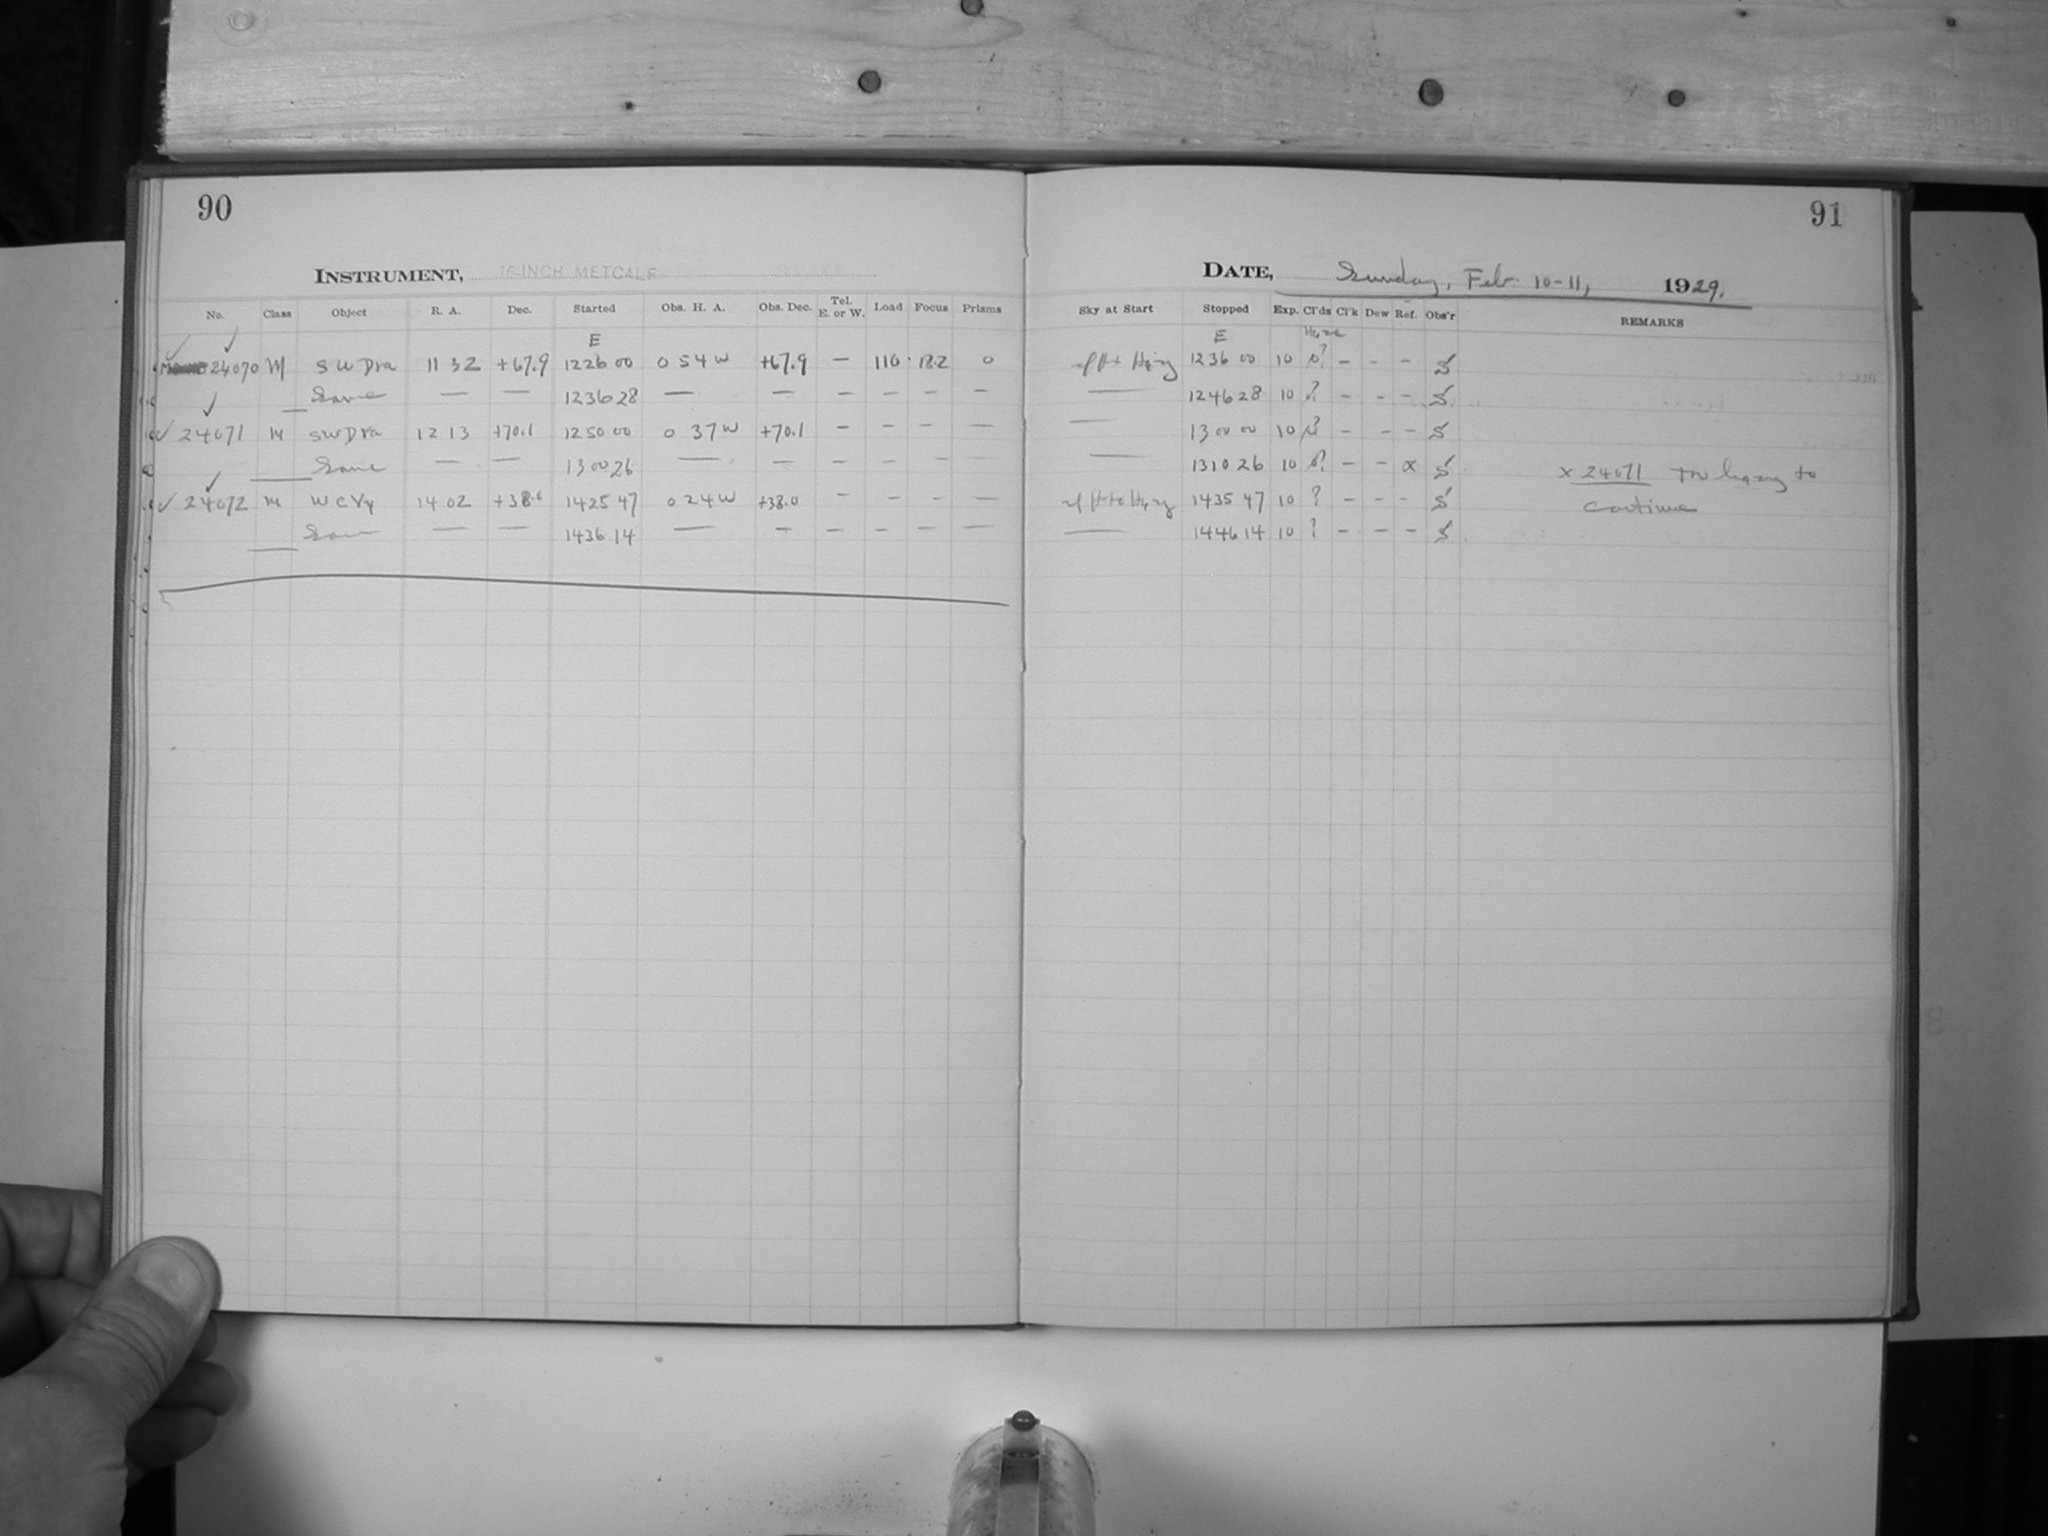 90
INSTRUMENT, 16-INCH METCALF
No. Class Object R. A. Dec. Started Obs. H. A. Obs. Dec. Tel. E. or W. Load Focus Prisms
E
24070 M SW Dra 11 32 +67.9 12 26 00 0 54 W +67.9 — 110 18.2 0
Same — — 12 36 28 — — — — — —
✓ 24071 M SW Dra 12 13 +70.1 12 50 00 0 37 W +70.1 — — — —
Same — — 13 00 26 — — — — — —
✓ 24072 M W CVn 14 02 14 25 47 0 24 W +38.0 — — — —
Same — — 14 36 14 — — — — — —
91
DATE, Sunday, Feb. 10-11, 1929.
Sky at Start Stopped Exp. Cl'ds Cl'k Dew Ref. Obs'r REMARKS
E Haze
Hazy 12 36 00 10 ? — — — S
— 12 46 28 10 ? — — — S
— 13 00 00 10 ? — — — S
— 13 10 26 10 ? — — x S x 24071 Too hazy to
Hazy 14 35 47 10 ? — — — S continue
— 14 46 14 10 ? — — — S